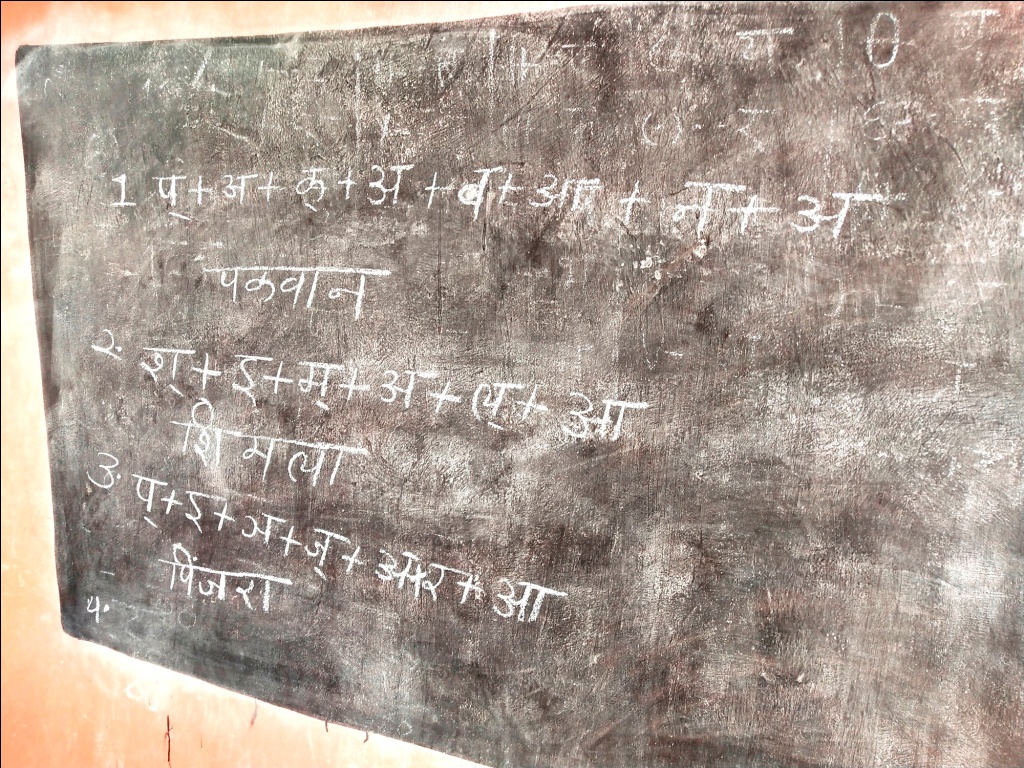 1 प्+अ+ क्+अ + व+ आ + न+ अ
पकवान
२. श्+इ+म्+अ+ल्+ आ
शिमला
3. प्+इ+ञ+ज्+ अ+र + आ
पिंजरा
४.